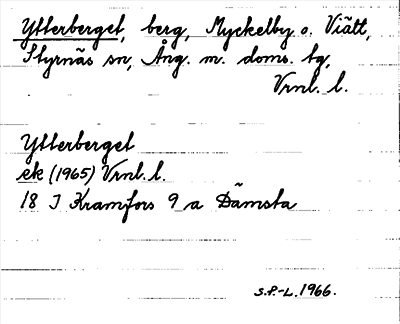 Ytterberget, berg, Myckelby o. Viätt,
Styrnäs sn, Ång. m. doms. tg,
Vrnl. l.
Ytterberget
ek (1965) Vrnl. l.
18 I Kramfors 9 a Dämsta
S.P.-L. 1966.